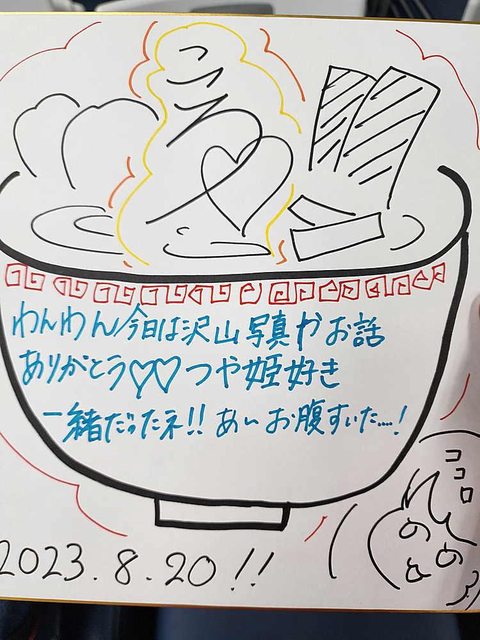 わんわん今日は沢山写真やお話
ありがとう♡♡つや姫好き
一緒だったネ!! あぃお腹すいた....!
ココロ
2023.8.20!!